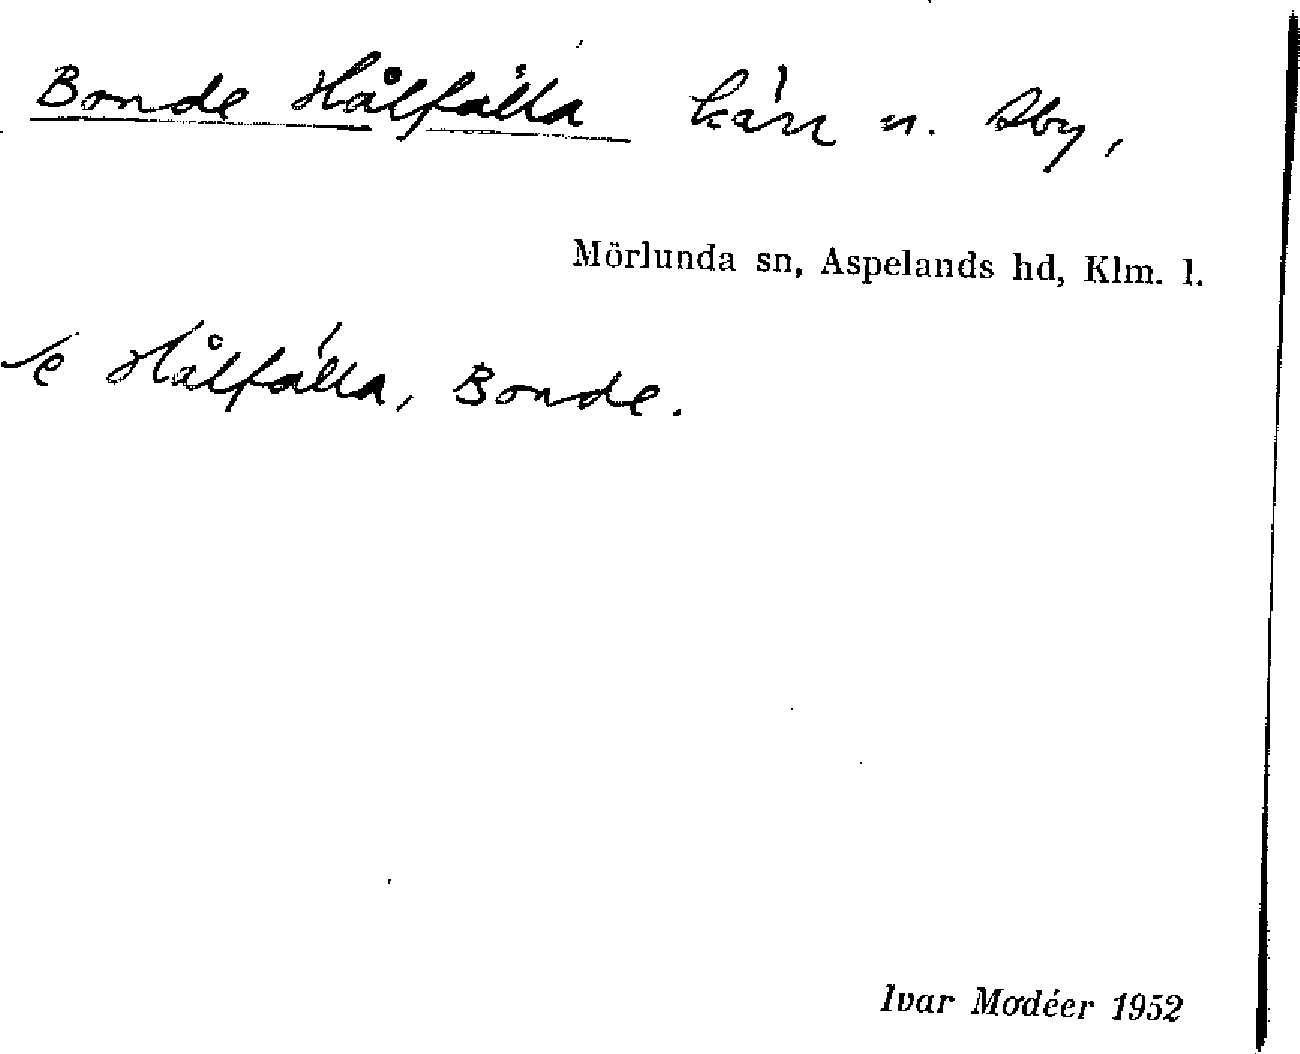 Bonde Hålfälla kärr n. Åby,
Mörlunda sn, Aspelands hd, Klm. l.
se Hålfälla, Bonde.
Ivar Modéer 1952